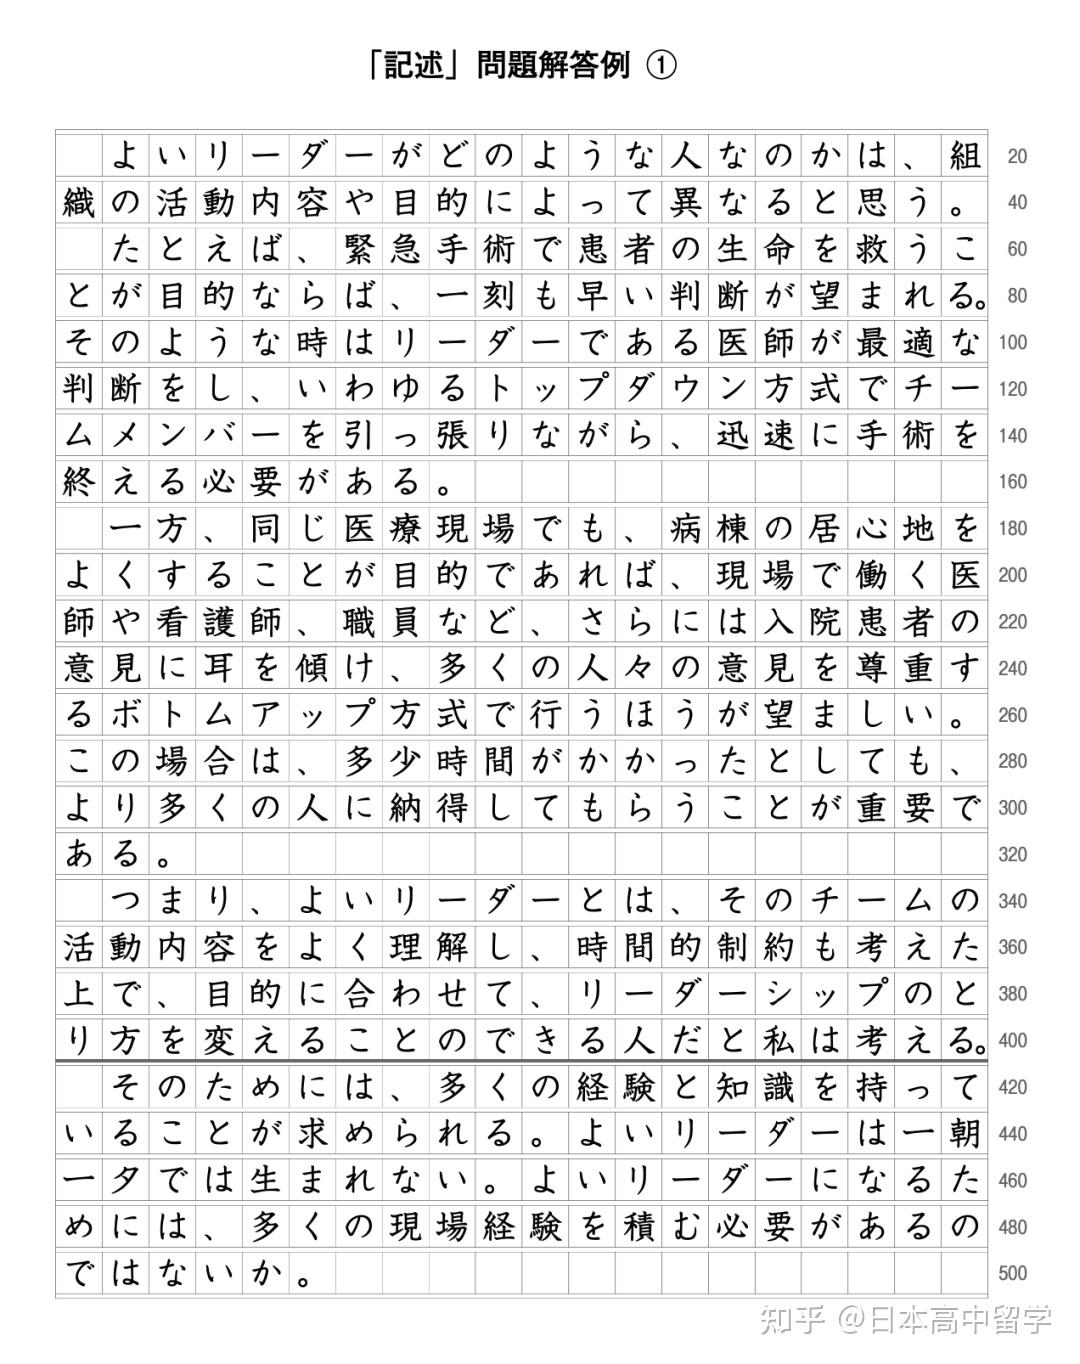 「記述」問題解答例 ①
　よいリーダーがどのような人なのかは、組 20
織の活動内容や目的によって異なると思う。 40
　たとえば、緊急手術で患者の生命を救うこ 60
とが目的ならば、一刻も早い判断が望まれる。 80
そのような時はリーダーである医師が最適な 100
判断をし、いわゆるトップダウン方式でチー 120
ムメンバーを引っ張りながら、迅速に手術を 140
終える必要がある。 160
　一方、同じ医療現場でも、病棟の居心地を 180
よくすることが目的であれば、現場で働く医 200
師や看護師、職員など、さらには入院患者の 220
意見に耳を傾け、多くの人々の意見を尊重す 240
るボトムアップ方式で行うほうが望ましい。 260
この場合は、多少時間がかかったとしても、 280
より多くの人に納得してもらうことが重要で 300
ある。 320
　つまり、よいリーダーとは、そのチームの 340
活動内容をよく理解し、時間的制約も考えた 360
上で、目的に合わせて、リーダーシップのと 380
り方を変えることのできる人だと私は考える。 400
　そのためには、多くの経験と知識を持って 420
いることが求められる。よいリーダーは一朝 440
一夕では生まれない。よいリーダーになるた 460
めには、多くの現場経験を積む必要があるの 480
ではないか。 500
知乎 @日本高中留学